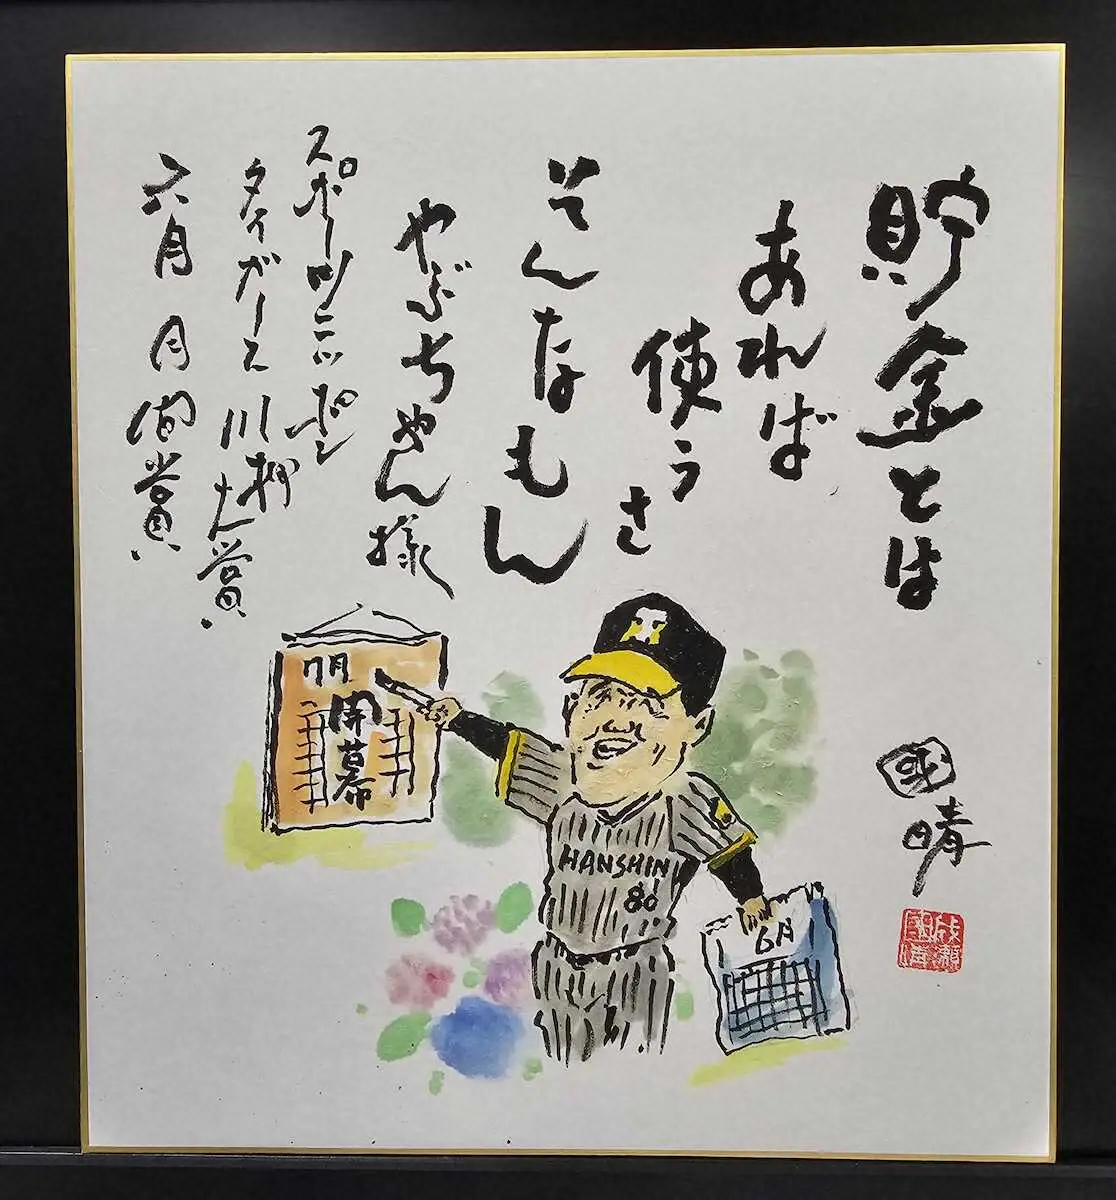 貯金とは
あれば
使うさ
そんなもん
やぶちゃん様
スポーツニッポン
タイガース川柳大賞
六月 月間賞
7月
開幕
HANSHIN
80
6月
國晴
成瀬
國晴